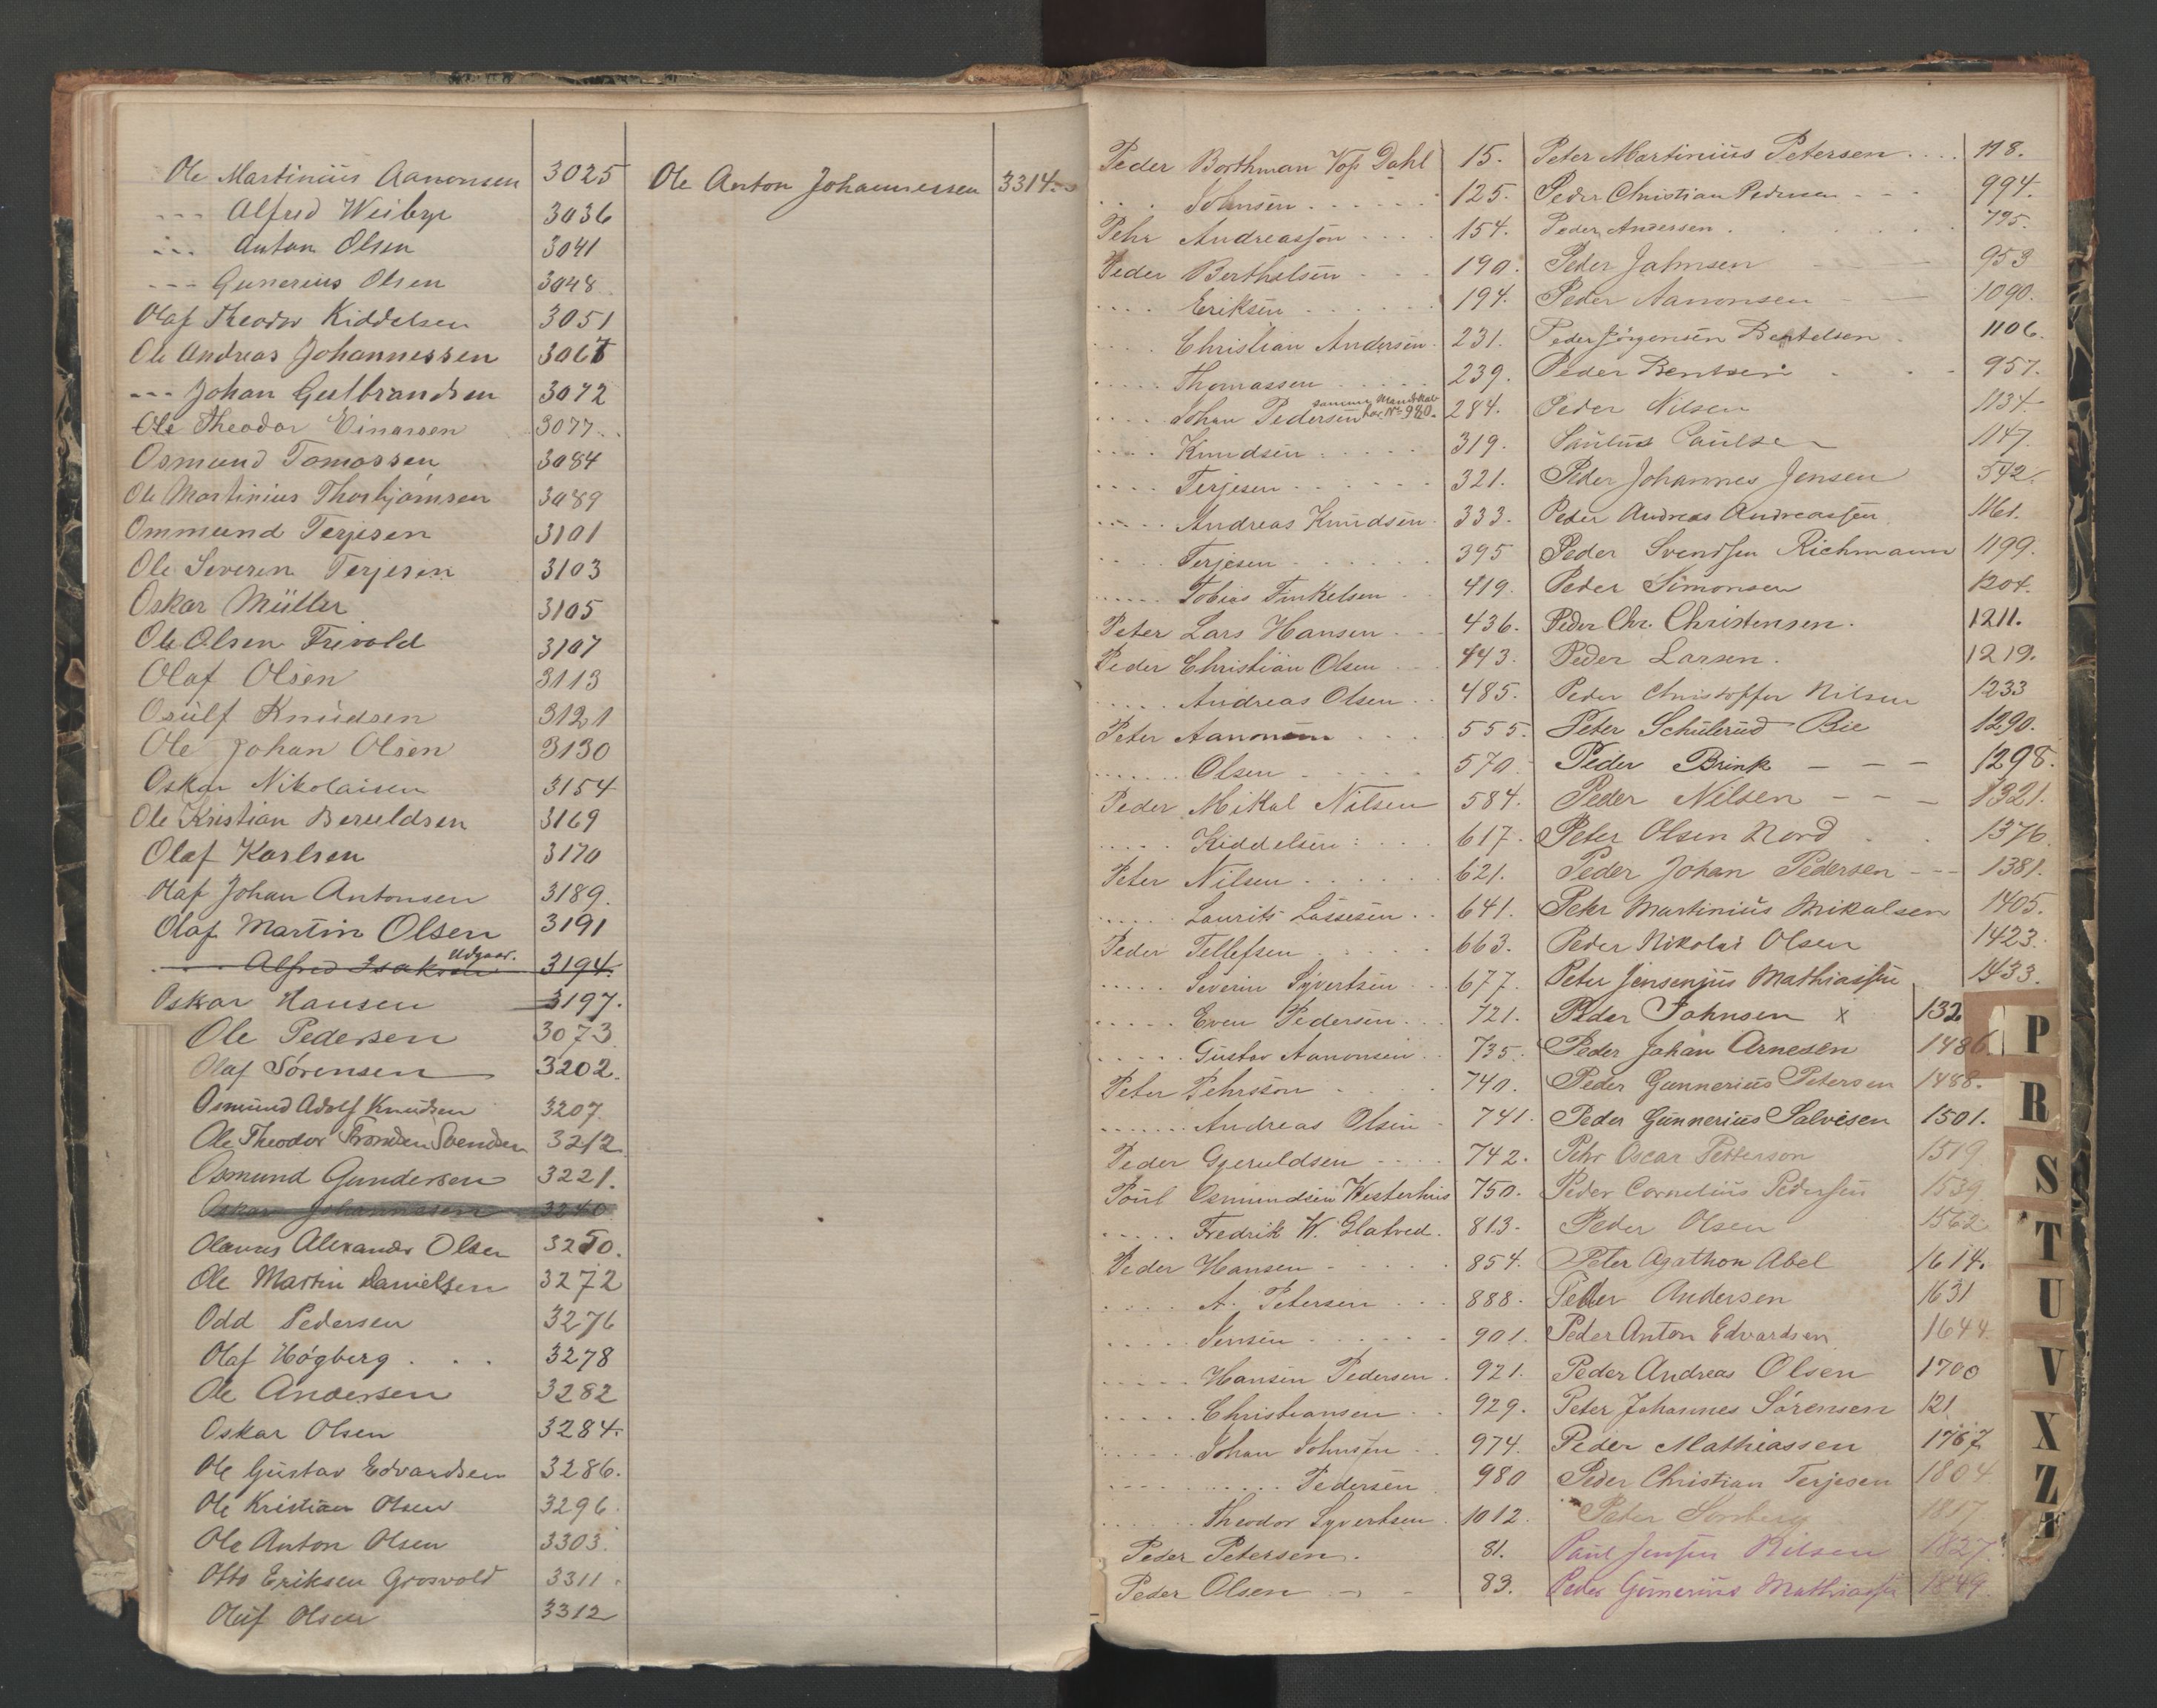 Ole Martinius Aanonsen 3025
--- Alfred Weibye 3036
--- Anton Olsen 3041
--- Gunerius Olsen 3048
Olaf Theodor Kiddelsen 3051
Ole Andreas Johannessen 3067
--- Johan Gulbrandsen 3072
Ole Theodor Einarsen 3077
Osmund Tomassen 3084
Ole Martinius Thorbjørnsen 3089
Ommund Terjesen 3101
Ole Severin Terjesen 3103
Oskar Müller 3105
Ole Olsen Frivold 3107
Olaf Olsen 3113
Osülf Knüdsen 3121
Ole Johan Olsen 3130
Oskar Nikolaisen 3154
Ole Kristian Beruldsen 3169
Olaf Karlsen 3170
Olaf Johan Antonsen 3189.
Olaf Martin Olsen 3191
Udgaar.
--- Alfred Isaksen 3194.
Oskar Hansen 3197.
Ole Pedersen 3073
Olaf Sörensen 3202.
Osmund Adolf Knudsen 3207
Ole Theodor Svendsen 3212
Osmund Gundersen 3221.
Oskar Johannesen 3240
Olaves Alexander Olsen 3250.
Ole Martin Danielsen 3272
Odd Pedersen 3276
Olaf Högberg . . . 3278
Ole Andersen 3282
Oskar Olsen 3284.
Ole Gustav Edvardsen 3286.
Ole Kristian Olsen 3296
Ole Anton Olsen 3303
Otto Eriksen Grosvold 3311
Oluf Olsen 3312
Ole Anton Johannessen 3314.
Peder Borthman Vop Dahl 15.
.... Johnsen 125.
Pehr Andreasson 154.
Peder Berthelsen 190.
.... Eriksen 194.
.... Christian Andersen 231.
.... Thomassen 239.
samme Mandskab
.... Johan Pedersen har No 980. 284.
.... Knudsen 319.
.... Terjesen 321.
.... Andreas Knudsen 333.
.... Terjesen 395
.... Tobias Finkelsen 419.
Peter Lars Hansen 436.
Peder Christian Olsen 443.
.... Andreas Olsen 485.
Peter Aanonsen 555.
.... Olsen 570.
Peder Mikal Nilsen 584.
.... Kiddelsen 617.
Peter Nilsen 621.
.... Laurits Lassesen 641.
Peder Tellefsen 663.
.... Severin Syvertsen 677.
.... Even Pedersen 721.
.... Gustav Aanonsen 735.
Peter Pehrsson 740.
.... Andreas Olsen 741.
Peder Gjeruldsen 742.
Poul Osmundsen Westerhus 750.
.... Fredrik W. Glatved. 813.
Peder Hansen 854.
.... A. Petersen 888.
.... Jensen 901.
.... Hansen Pedersen 921.
.... Christiansen 929.
.... Johan Johnsen 974.
.... Pedersen 980
.... Theodor Syvertsen 1012.
Peder Petersen. 81.
Peder Olsen 83.
Peter Martinius Petersen 118.
Peder Christian Pedersen 994.
Peder Andersen 795.
Peder Johnsen 953
Peder Aanonsen 1090.
Peder Jörgensen Bertelsen 1106.
Peder Bentsen 957.
Peder Nilsen 1134.
Paulus Paulsen 1147.
Peder Johannes Jensen 542.
Peder Andreas Andreassen 1161.
Peder Svendsen Richmann 1199.
Peder Simonsen 1204.
Peder Chr. Christensen. 1211.
Peder Larsen. 1219.
Peder Christoffer Nilsen 1233
Peter Schülerud Bie 1290.
Peder Brink 1298.
Peder Nilsen 1321.
Peter Olsen Nord 1376
Peder Johan Pedersen 1381.
Pehr Martinius Mikalsen 1405.
Peder Nikolai Olsen 1423.
Peter Jensenius Mathiassen 1433.
Peder Johnsen x 132
Peder Johan Arnesen 1486.
Peder Gunnerius Petersen 1488.
Peder Gunnerius Salvesen 1501.
Pehr Oscar Petterson 1519
Peder Cornelius Pedersen 1539
Peder Olsen 1562
Peter Agathon Abel 1614.
Peder Andersen 1631
Peder Anton Edvardsen 1644.
Peder Andreas Olsen 1700
Peter Johannes Sörensen 121
Peder Mathiassen 1767
Peder Christian Terjesen 1804
Peter Sonberg 1817
Paul Jensen Nilsen 1827.
Peder Gunerius Mathiassen 1849.
P
R
S
T
U
V
X
Z